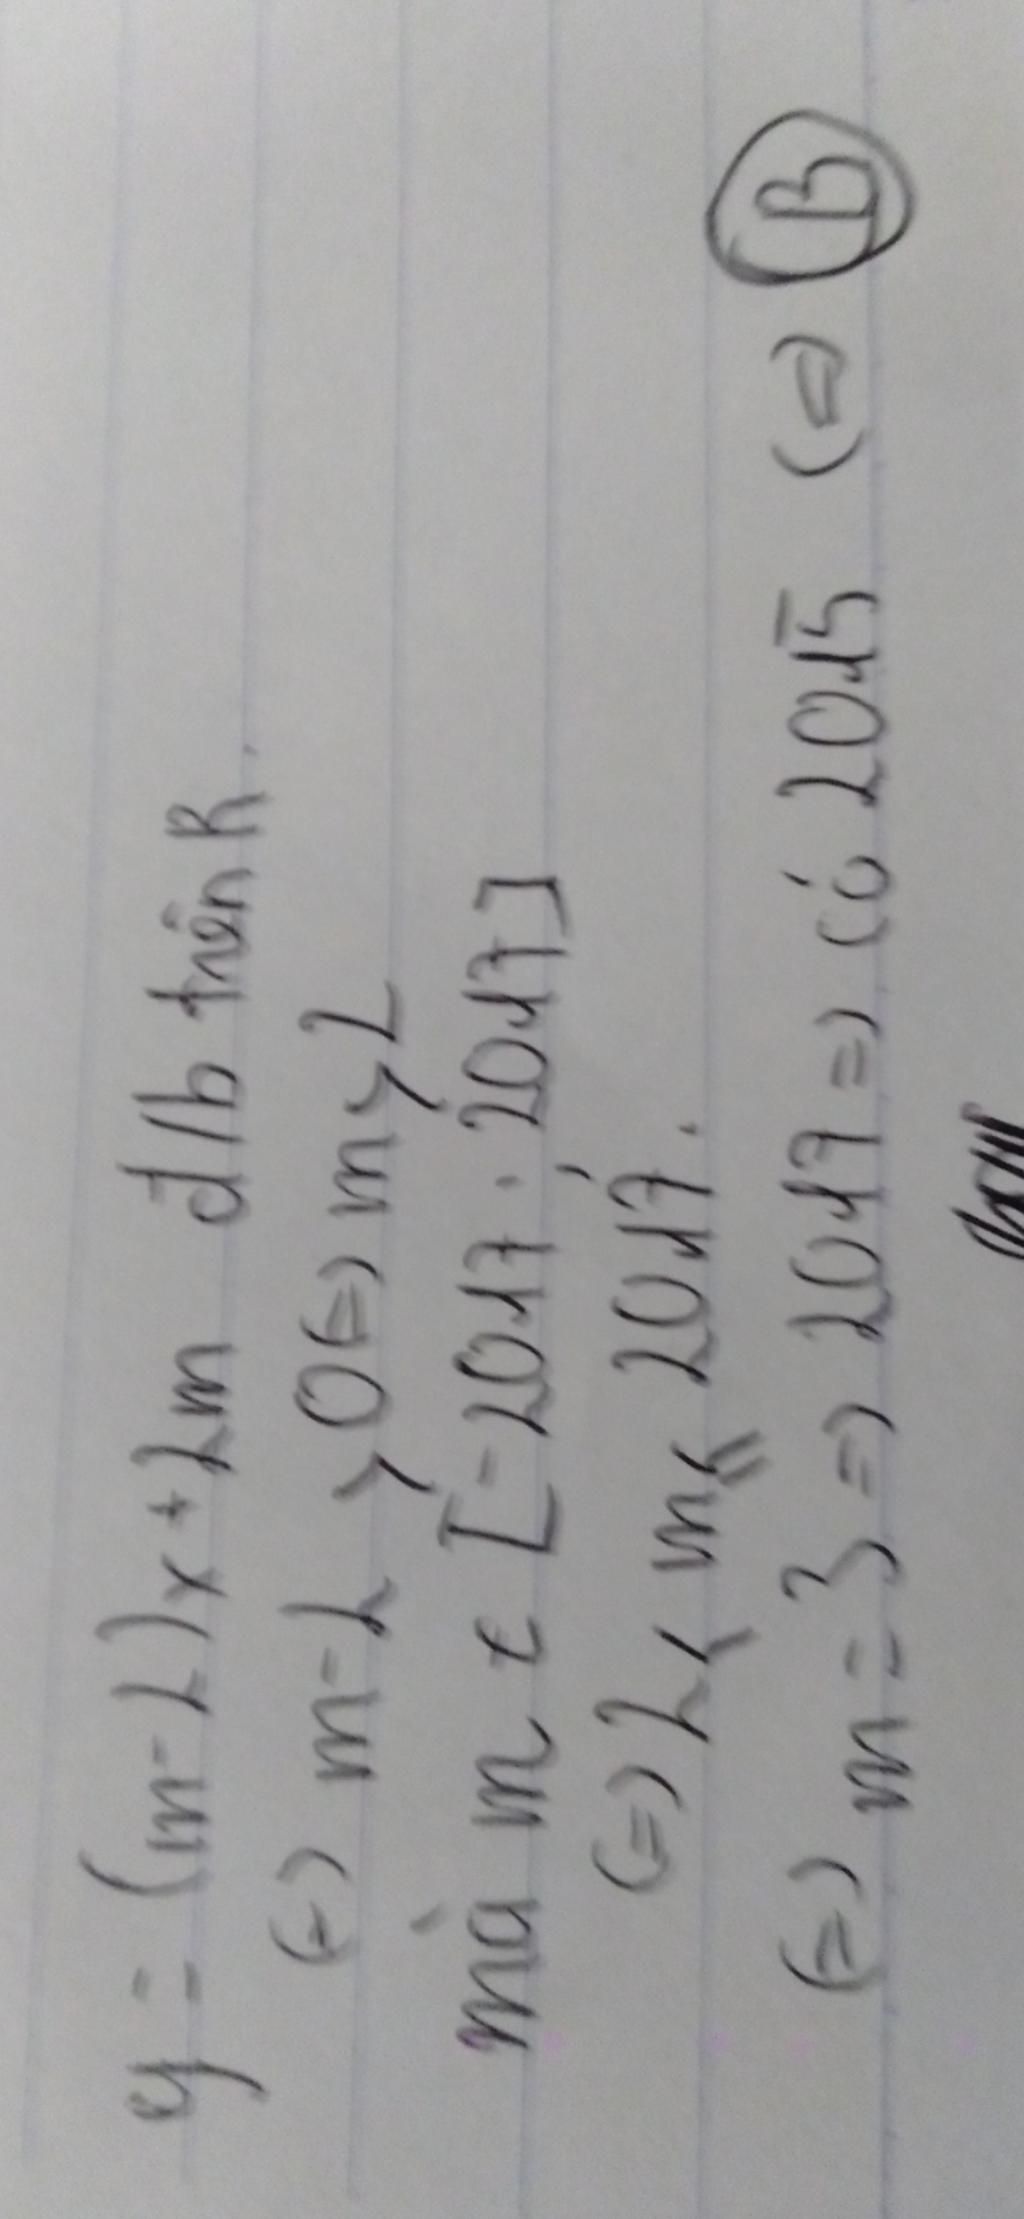 y = (m-2)x+2m đ/b trên R.
(=) m-2 > 0 (=) m > 2
mà m ϵ [-2017. 2017]
(=) 2 < m ≤ 2017.
(=) m = 3 => 2017 => có 2015 (=) B